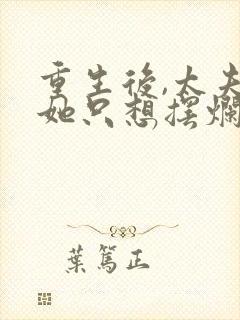 重生後,太夫
她只想擺爛
葉篤正